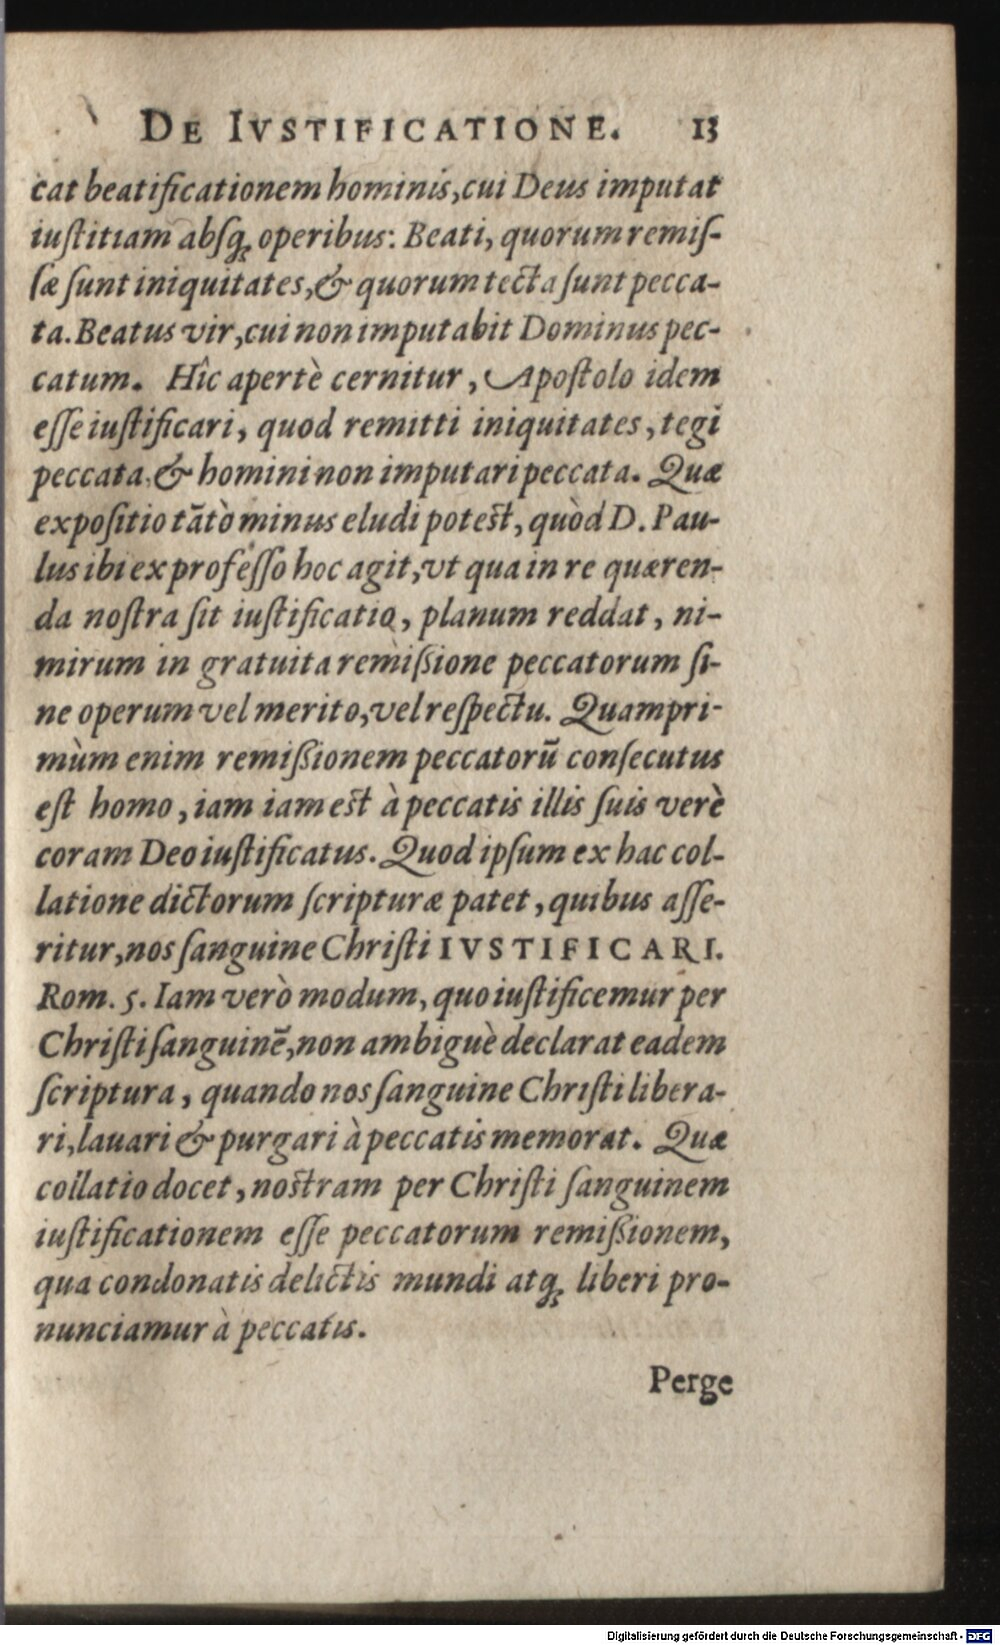 DE IVSTIFICATIONE. 13
cat beatificationem hominis, cui Deus imputat
iuſtitiam abſq́ꝫ operibus: Beati, quorum remiſ-
ſæ ſunt iniquitates, & quorum tecta ſunt pecca-
ta. Beatus vir, cui non imputabit Dominus pec-
catum. Hîc apertè cernitur, Apoſtolo idem
eſſe iuſtificari, quod remitti iniquitates, tegi
peccata, & homini non imputari peccata. Quæ
expoſitio tātò minus eludi poteſt, quòd D. Pau-
lus ibi ex profeſſo hoc agit, vt qua in re quæren-
da noſtra ſit iuſtificatio, planum reddat, ni-
mirum in gratuita remiſsione peccatorum ſi-
ne operum vel merito, vel reſpectu. Quampri-
mùm enim remiſsionem peccatorū conſecutus
eſt homo, iam iam eſt à peccatis illis ſuis verè
coram Deo iuſtificatus. Quod ipſum ex hac col-
latione dictorum ſcripturæ patet, quibus aſſe-
ritur, nos ſanguine Chriſti IVSTIFICARI.
Rom. 5. Iam verò modum, quo iuſtificemur per
Chriſti ſanguinē, non ambiguè declarat eadem
ſcriptura, quando nos ſanguine Chriſti libera-
ri, lauari & purgari à peccatis memorat. Quæ
collatio docet, noſtram per Chriſti ſanguinem
iuſtificationem eſſe peccatorum remiſsionem,
qua condonatis delictis mundi atq́ꝫ liberi pro-
nunciamur à peccatis.
Perge
Digitalisierung gefördert durch die Deutsche Forschungsgemeinschaft - DFG